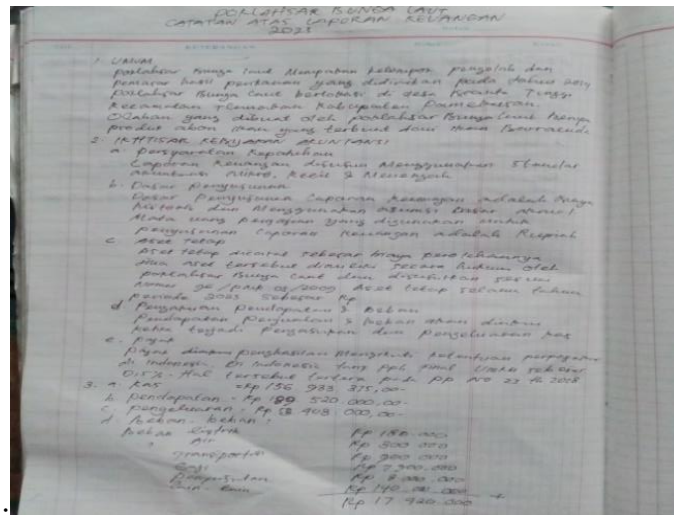 POKLAHSAR BUNGA LAUT
CATATAN ATAS LAPORAN KEUANGAN
2023
1. UMUM
poklahsar Bunga Laut Merupakan kelompok pengolah dan
pemasar hasil perikanan yang didirikan pada tahun
poklahsar Bunga Laut berlokasi di desa Tinggi
kecamatan Kabupaten Pamekasan.
Olahan yang dibuat oleh poklahsar Bunga Laut
produk ikan yang terbuat dari
2. IKHTISAR KEBIJAKAN AKUNTANSI
a. Pernyataan Kepatuhan
Laporan keuangan disusun Menggunakan Standar
Akuntansi Mikro, Kecil & Menengah
b. Dasar Penyusunan
Dasar Penyusunan Laporan keuangan adalah Biaya
historis dan Menggunakan asumsi dasar
Mata uang penyajian yang digunakan untuk
penyusunan Laporan keuangan adalah Rupiah
c Aset Tetap
Aset tetap dicatat sebesar biaya perolehannya
Jika aset tersebut dimiliki secara hukum oleh
poklahsar Bunga Laut dan disusutkan sesuai
nomor 96/PMK 03/2009 Aset tetap selama tahun
Periode 2023 sebesar Rp
d Pengakuan pendapatan & beban
Pendapatan Penjualan & beban akan diakui
ketika terjadi dan pengeluaran kas
e. pajak
Pajak penghasilan Mengikuti ketentuan perpajakan
di Indonesia. Di Indonesia PPh Final UMKM sebesar
0,5%. Hal tersebut tertera pada PP No 23 th 2018
3. a. KAS = Rp 156 933 375,00-
b pendapatan = Rp 520 000,00-
c pengeluaran = Rp 408 000,00-
d. Beban-beban:
Beban Listrik Rp 180.000
" Air Rp 300 000
Transportasi Rp 900 000
Gaji Rp
Penyusutan Rp
Lain-lain Rp
Rp 17 920.000